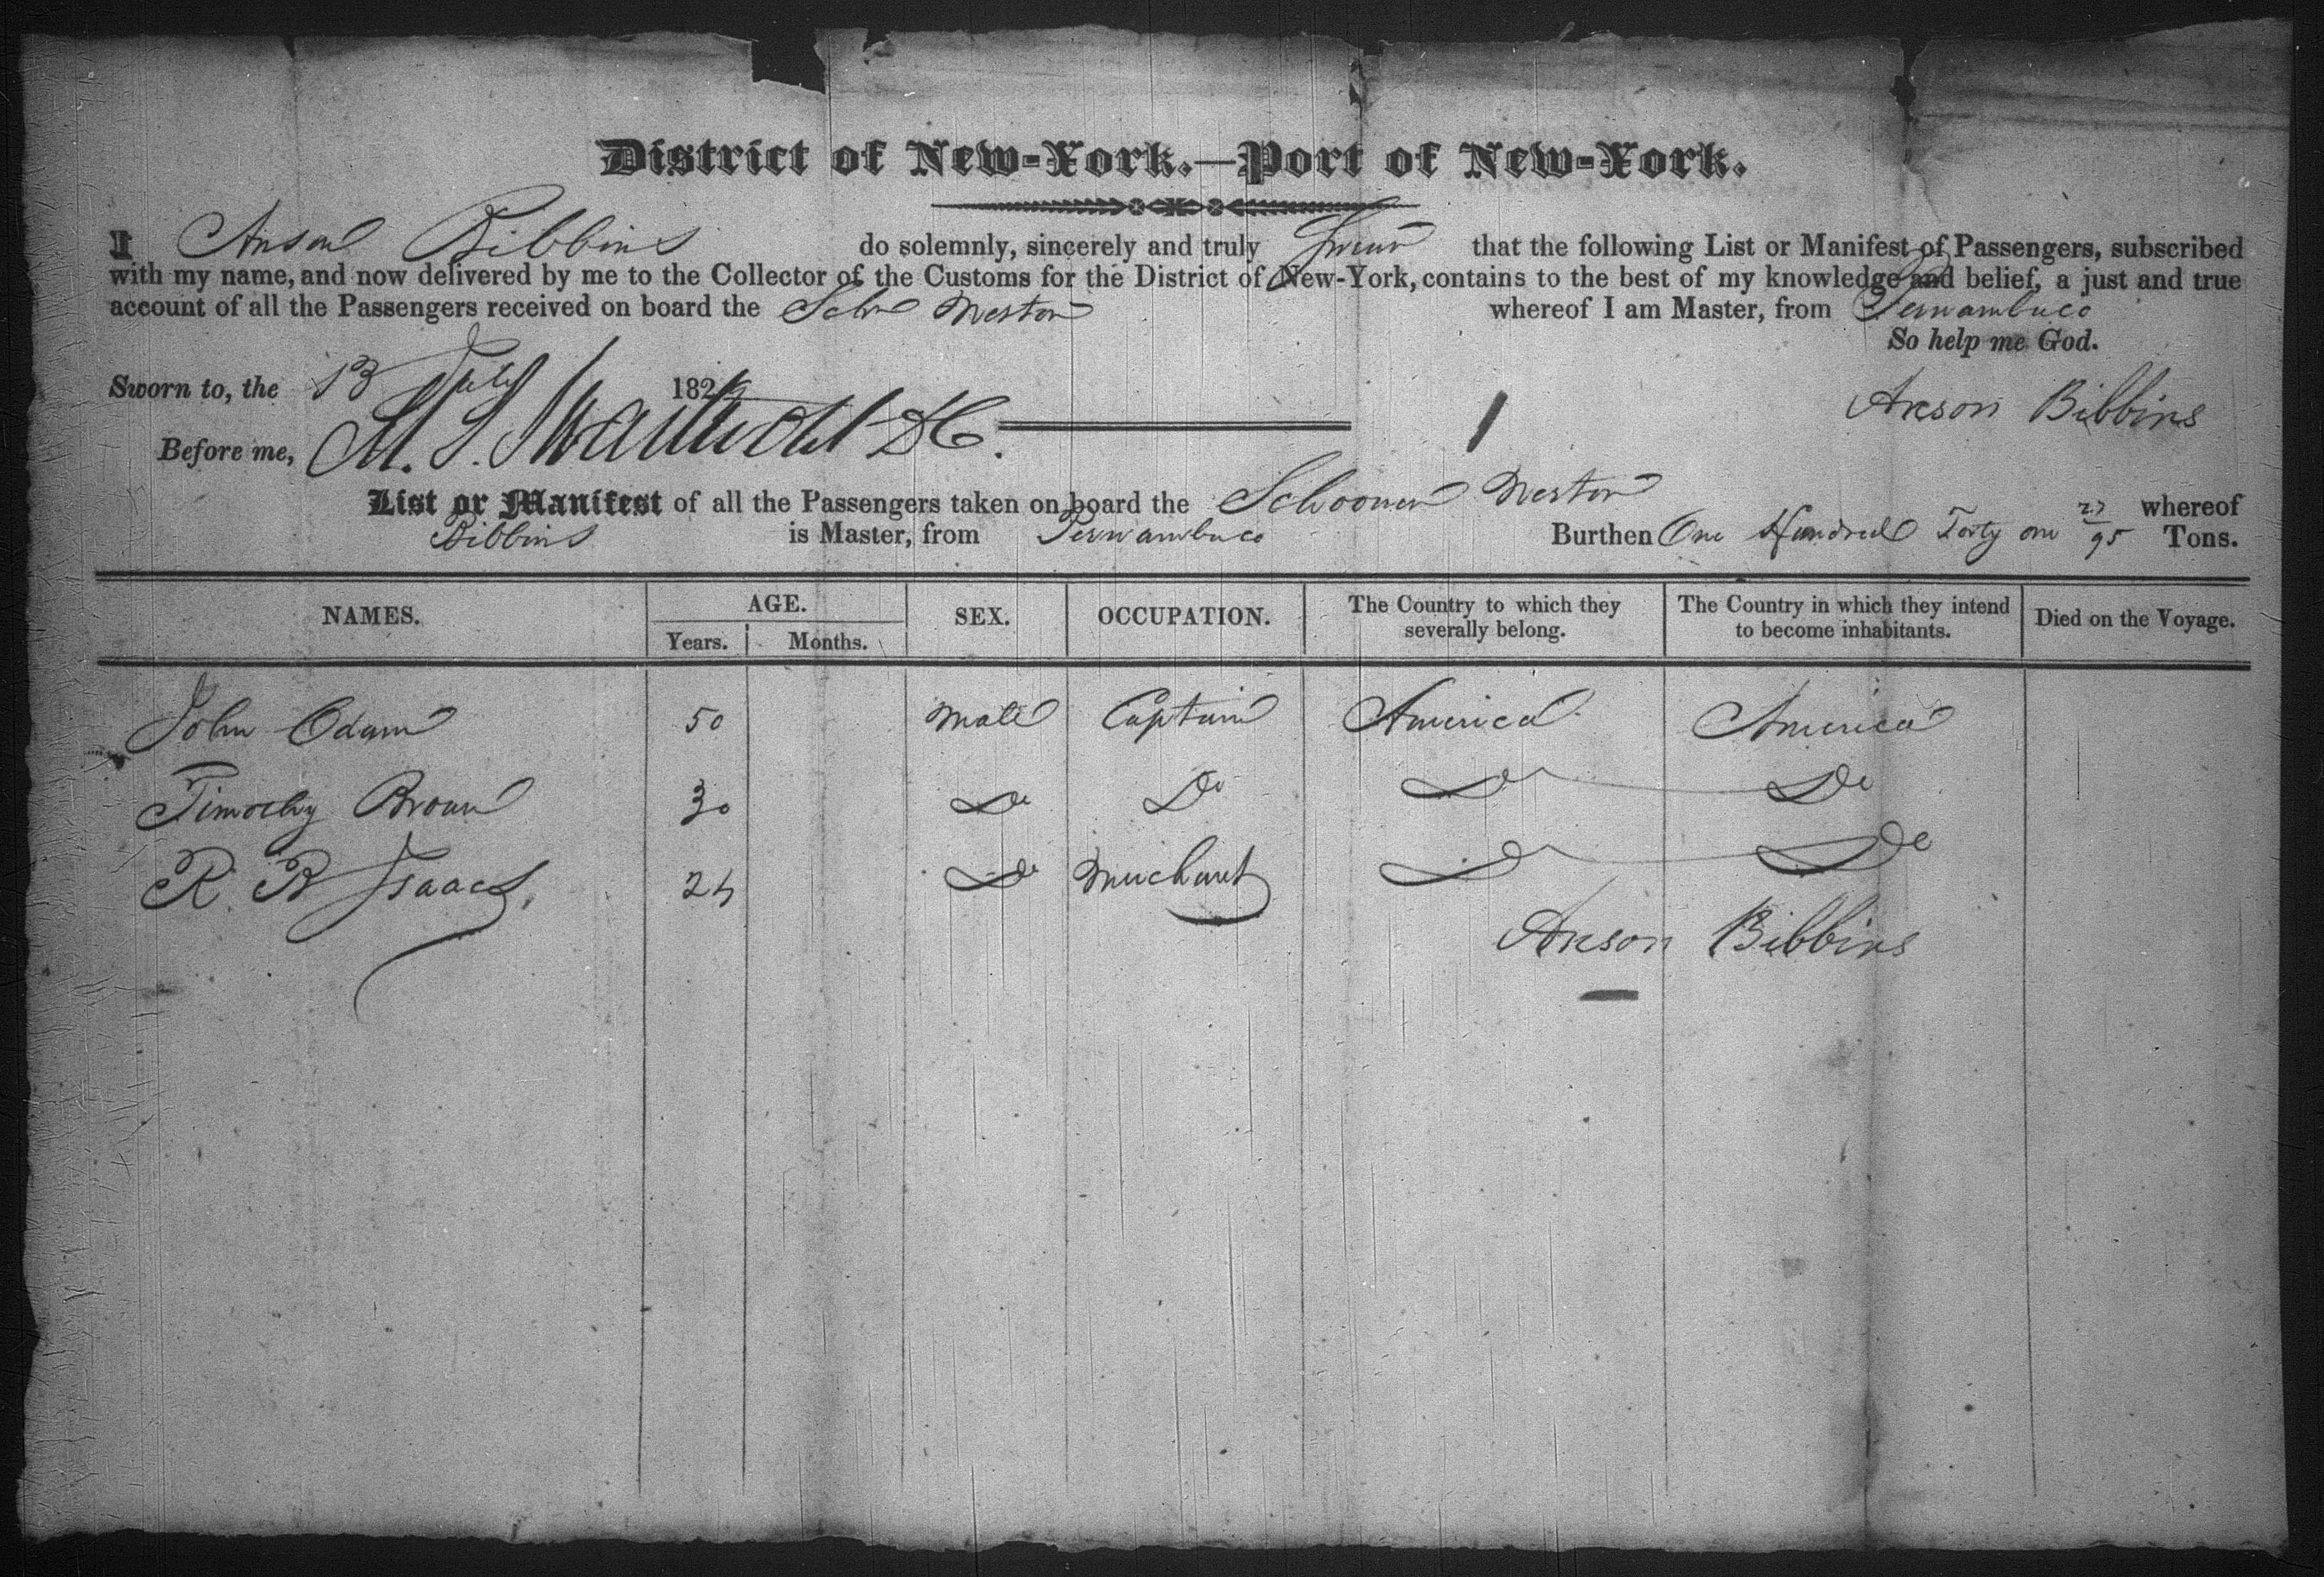 District of New-York.—Port of New-York.
I Anson Bibbins do solemnly, sincerely and truly Swear that the following List or Manifest of Passengers, subscribed
with my name, and now delivered by me to the Collector of the Customs for the District of New-York, contains to the best of my knowledge and belief, a just and true
account of all the Passengers received on board the Schr Weston whereof I am Master, from Pernambuco
So help me God.
Sworn to, the 13 July 182
Anson Bibbins
Before me, M. Swartwout DC.
List or Manifest of all the Passengers taken on board the Schooner Weston whereof
Bibbins is Master, from Pernambuco Burthen One Hundred Forty one 27/95 Tons.
NAMES. AGE. SEX. OCCUPATION. The Country to which they severally belong. The Country in which they intend to become inhabitants. Died on the Voyage.
Years. Months.
John Odam 50 Male Captain America America
Timothy Brown 30 Do Do Do Do
R. B Isaacs, Do Merchant Do Do
Anson Bibbins